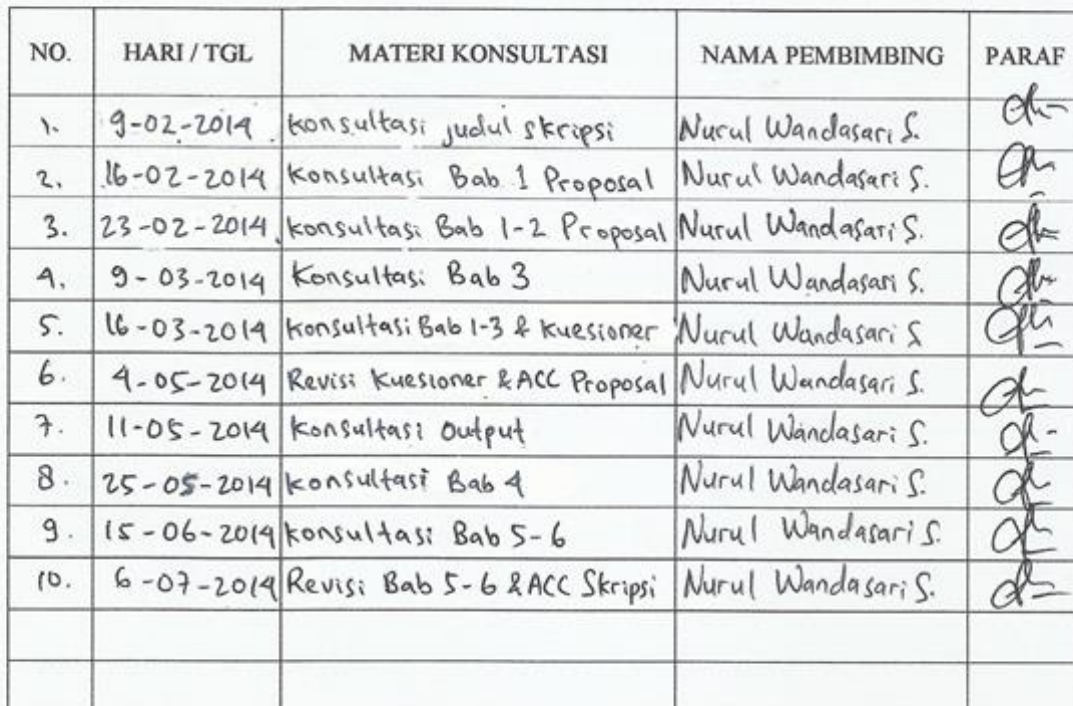 NO. HARI / TGL MATERI KONSULTASI NAMA PEMBIMBING PARAF
1. 9-02-2014 Konsultasi judul skripsi Nurul Wandasari S.
2. 16-02-2014 Konsultasi Bab 1 Proposal Nurul Wandasari S.
3. 23-02-2014 Konsultasi Bab 1-2 Proposal Nurul Wandasari S.
4. 9-03-2014 Konsultasi Bab 3 Nurul Wandasari S.
5. 16-03-2014 Konsultasi Bab 1-3 & Kuesioner Nurul Wandasari S
6. 4-05-2014 Revisi Kuesioner & ACC Proposal Nurul Wandasari S.
7. 11-05-2014 Konsultasi Output Nurul Wandasari S.
8. 25-05-2014 Konsultasi Bab 4 Nurul Wandasari S.
9. 15-06-2014 Konsultasi Bab 5-6 Nurul Wandasari S.
10. 6-07-2014 Revisi Bab 5-6 & ACC Skripsi Nurul Wandasari S.